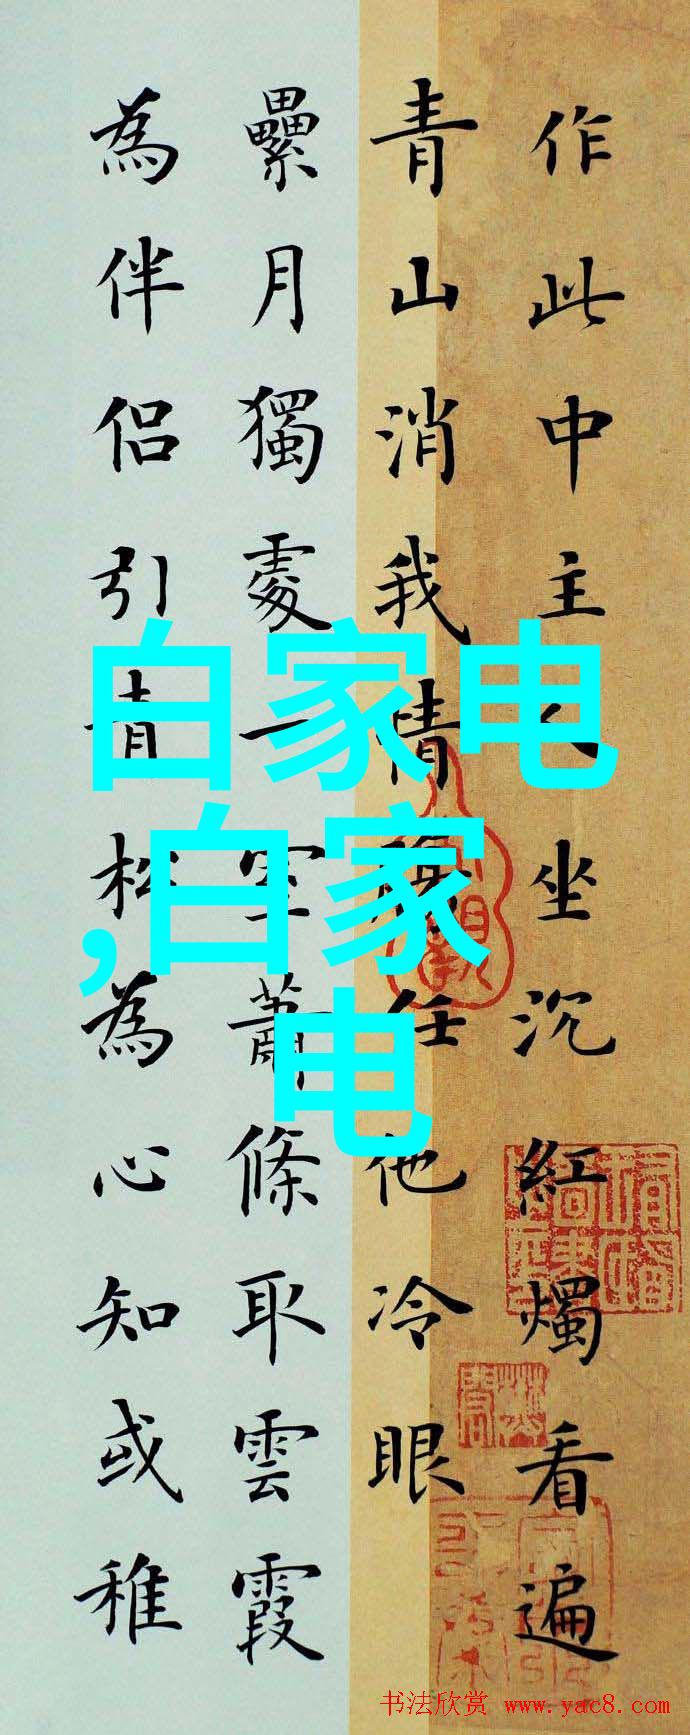 作此中主人坐沉紅燭看遍
青山消我情腸任他冷眼
纍月獨處一室蕭條取雲霞
為伴侶引青松為心知或稚
白家电
,白家
电
书法欣赏 www.yac8.com